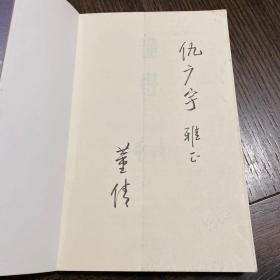 仇广宇
雅正
董倩